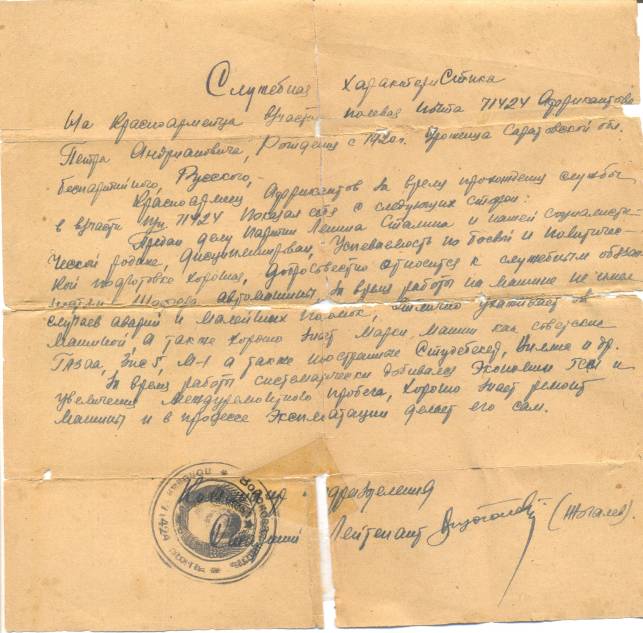 Служебная характеристика
На красноармейца в/части полевая почта 71424 Африкантова
Петра Андриановича, Рождения с 1920 г. Уроженца Саратовской обл.
беспартийного, Русского,-
Красноармеец Африкантов за время прохождения службы
в в/части п/п. 71424 показал себя с следующих сторон:
Предан делу партии Ленина Сталина и нашей социалисти-
ческой родине Дисциплинирован, Успеваемость по боевой и политичес-
кой подготовке хорошая, Добросовестно относится к служебным обязан-
ностям Шофера автомашины, За время работы на машине не имел
случаев аварий и малейших поломок, Отлично ухаживает за
машиной а также хорошо знает Марки машин как советские
ГАЗаа, Зис 5, М-1 а также иностранные Студебекер, Виллис и др.
За время работы систематически добивался Экономии ГСМ и
увеличения Междуремонтного пробега, хорошо знает ремонт
машины и в процессе Эксплоатации делает его сам.
Командир подразделения
Старший Лейтенант (Жогалев).